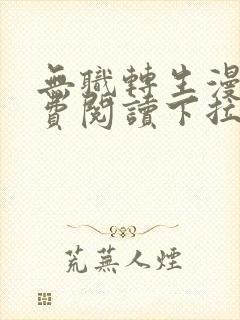 無職轉生漫
費閱讀下拉
荒蕪人煙